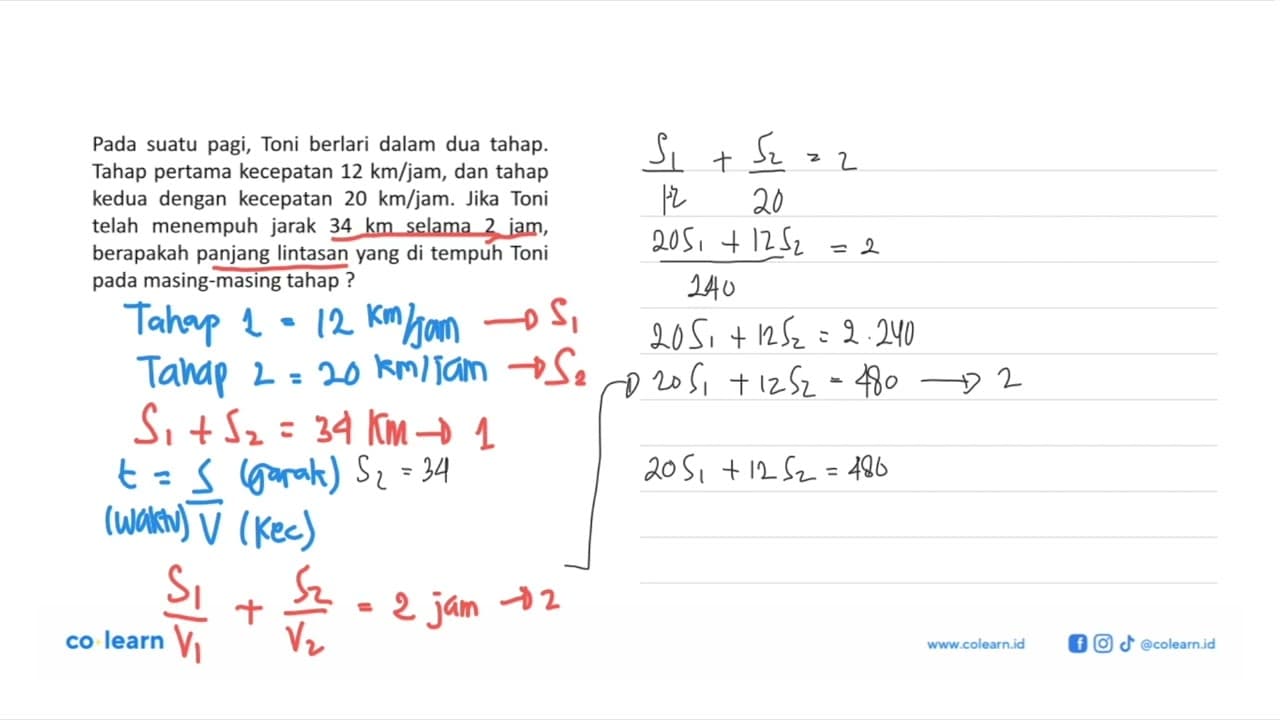 Pada suatu pagi, Toni berlari dalam dua tahap.
Tahap pertama kecepatan 12 km/jam, dan tahap
kedua dengan kecepatan 20 km/jam. Jika Toni
telah menempuh jarak 34 km selama 2 jam,
berapakah panjang lintasan yang di tempuh Toni
pada masing-masing tahap ?
Tahap 1 = 12 km/jam → S₁
Tahap 2 = 20 km/jam → S₂
S₁ + S₂ = 34 km → 1
t = S (jarak) S₂ = 34
(waktu) V (kec)
S₁/V₁ + S₂/V₂ = 2 jam → 2
S₁/12 + S₂/20 = 2
20S₁ + 12S₂ = 2
240
20S₁ + 12S₂ = 2.240
20S₁ + 12S₂ = 480 → 2
20S₁ + 12S₂ = 480
co learn
www.colearn.id
@colearn.id